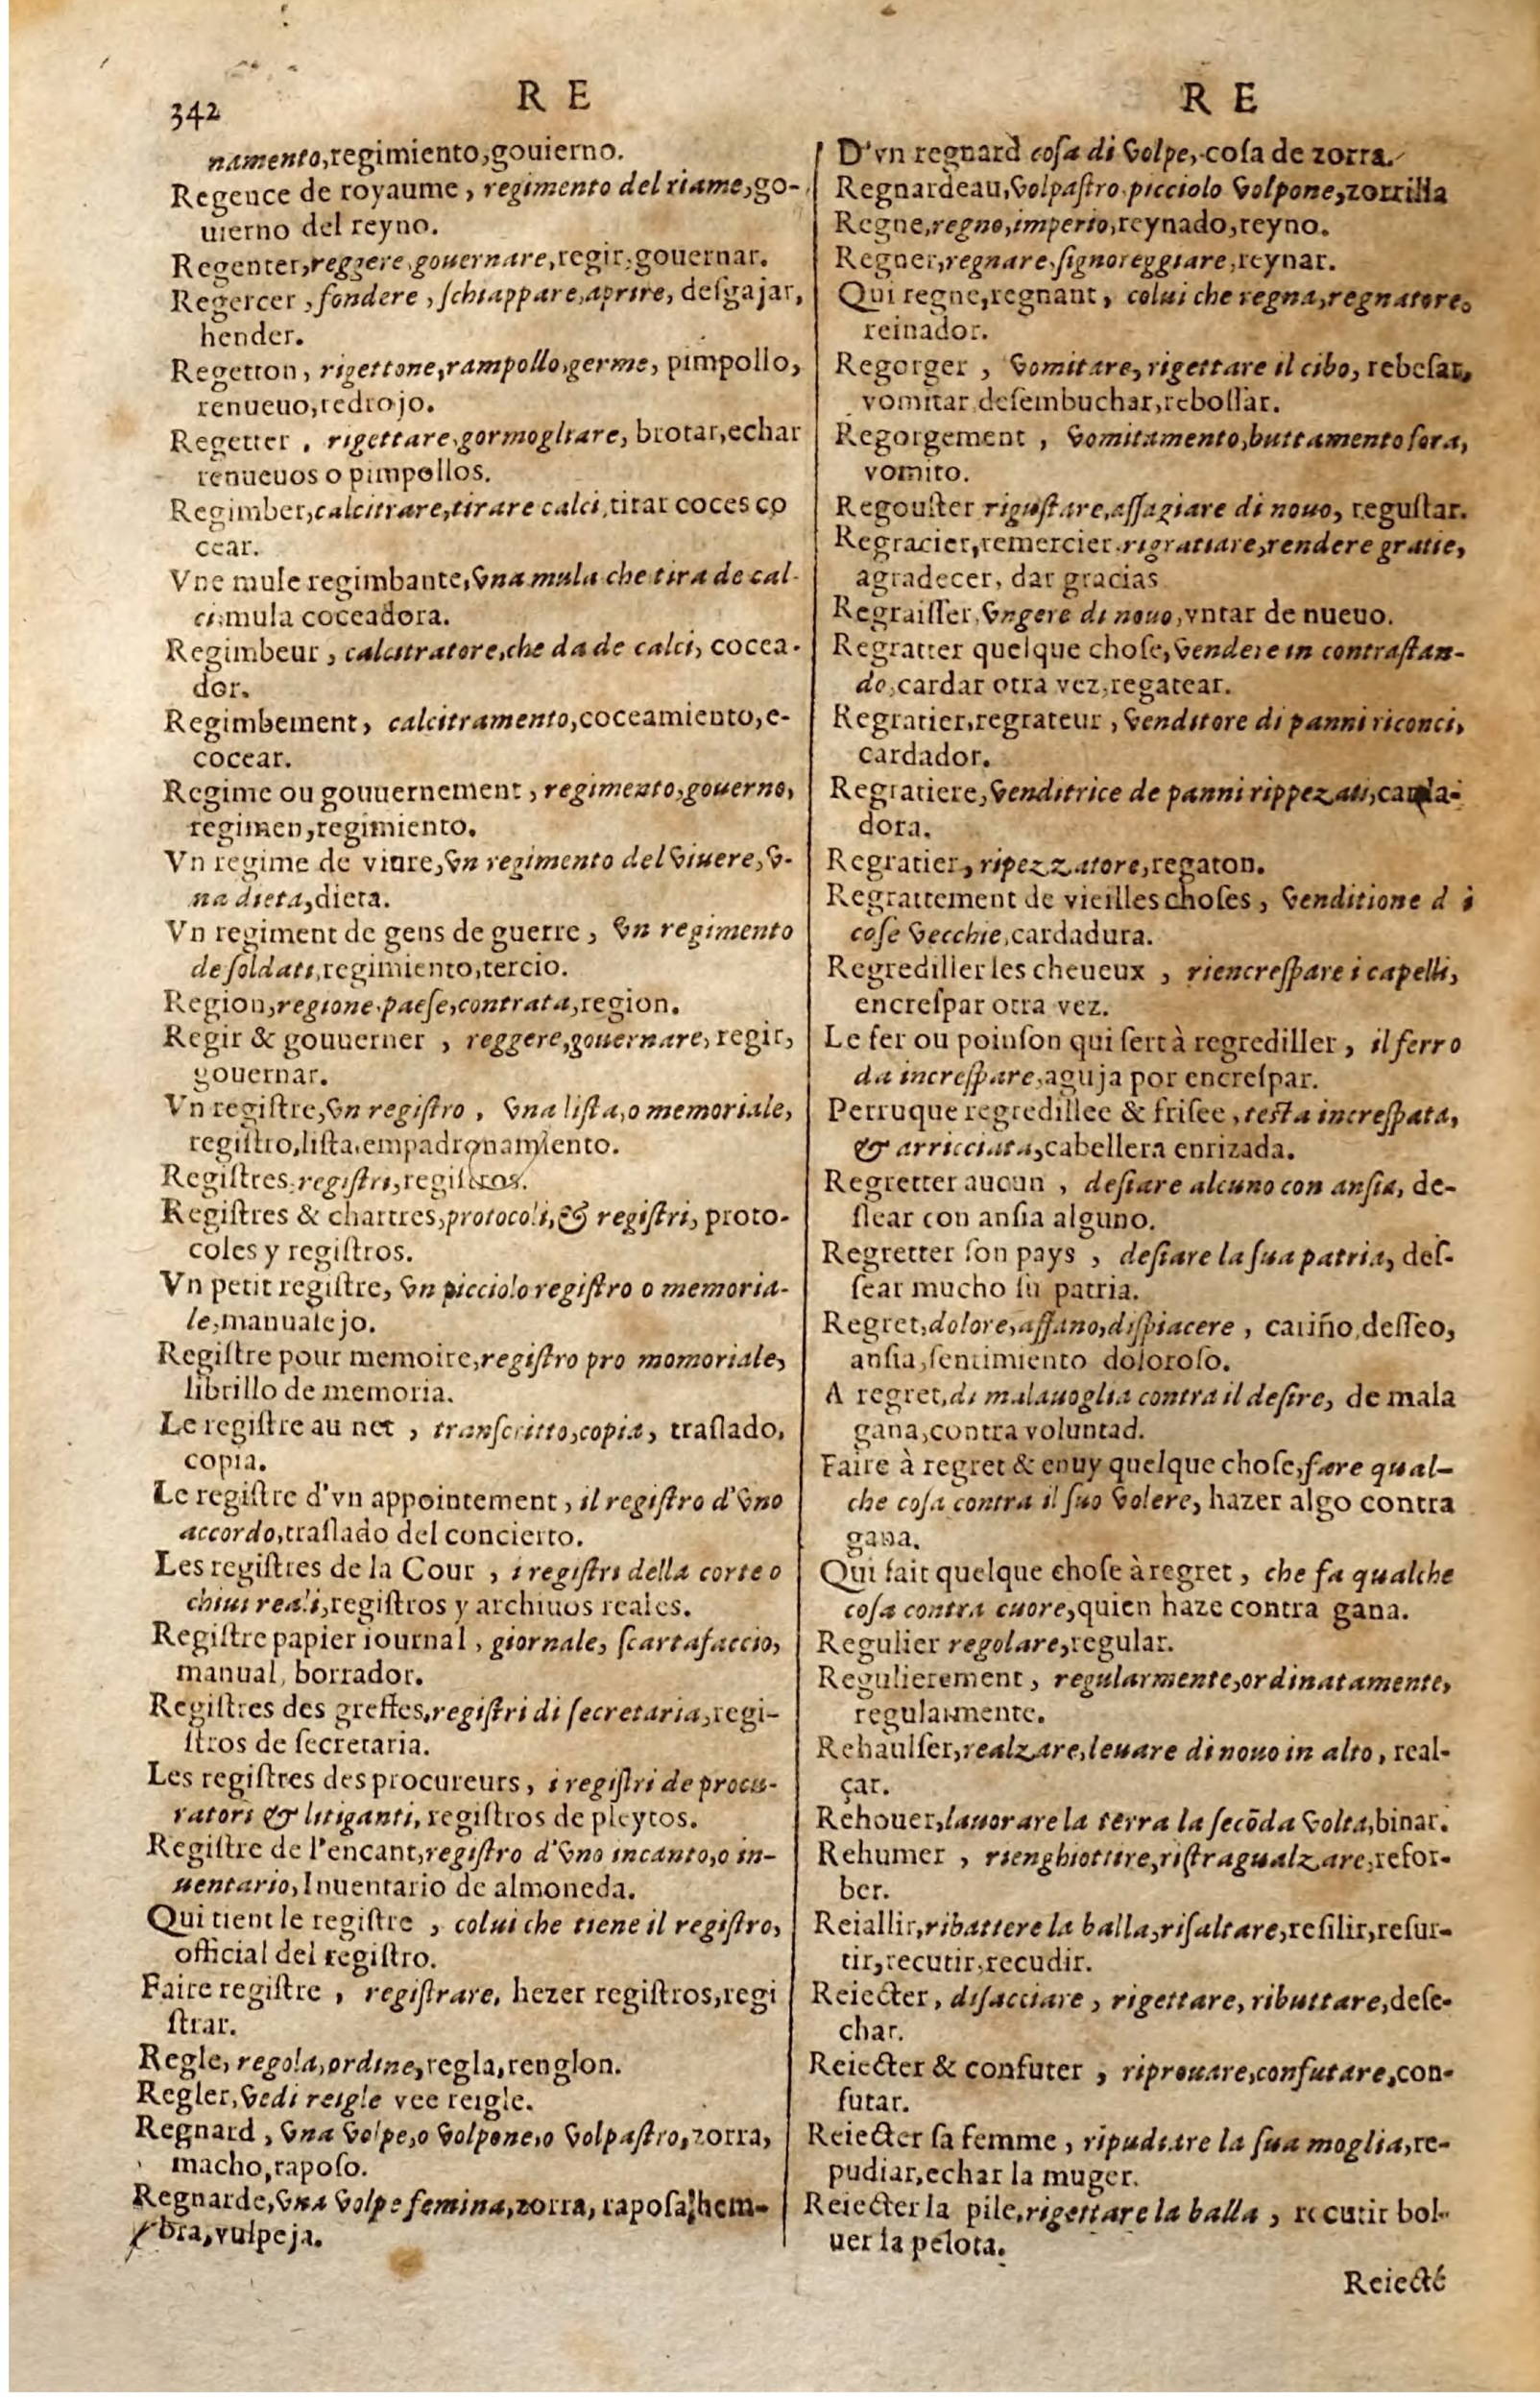 342
R E
namento,regimiento,gouierno.
Regence de royaume, regimento del riame,go-
uierno del reyno.
Regenter,reggere,gouernare,regir,gouernar.
Regercer,fondere,ſchiappare,aprire, deſgajar,
hender.
Regetton, rigettone,rampollo,germe, pimpollo,
renueuo,redrojo.
Regetter, rigettare,gormogliare, brotar,echar
renueuos o pimpollos.
Regimber,calcitrare,tirare calci,tirar coces co
cear.
Vne mule regimbante,vna mula che tira de cal-
ci,mula coceadora.
Regimbeur, calcitratore,che da de calci, cocea-
dor.
Regimbement, calcitramento,coceamiento,e-
cocear.
Regime ou gouuernement, regimento,gouerno,
regimen,regimiento.
Vn regime de viure,vn regimento del viuere,v-
na dieta,dieta.
Vn regiment de gens de guerre, vn regimento
de ſoldati,regimiento,tercio.
Region,regione,paeſe,contrata,region.
Regir & gouuerner, reggere,gouernare, regir,
gouernar.
Vn regiſtre,vn regiſtro, vna liſta,o memoriale,
regiſtro,liſta,empadronamiento.
Regiſtres,regiſtri,regiſtros.
Regiſtres & chartres,protocoli,& regiſtri, proto-
coles y regiſtros.
Vn petit regiſtre, vn picciolo regiſtro o memoria-
le,manualejo.
Regiſtre pour memoire,regiſtro pro momoriale,
librillo de memoria.
Le regiſtre au net, tranſcritto,copia, traſlado,
copia.
Le regiſtre d'vn appointement, il regiſtro d'vno
accordo,traſlado del concierto.
Les regiſtres de la Cour, i regiſtri della corte o
chiui reali,regiſtros y archiuos reales.
Regiſtre papier iournal, giornale, ſcartafaccio,
manual, borrador.
Regiſtres des greffes,regiſtri di ſecretaria,regi-
ſtros de ſecretaria.
Les regiſtres des procureurs, i regiſtri de procu-
ratori & litiganti, regiſtros de pleytos.
Regiſtre de l'encant,regiſtro d'vno incanto,o in-
uentario,Inuentario de almoneda.
Qui tient le regiſtre, colui che tiene il regiſtro,
official del regiſtro.
Faire regiſtre, regiſtrare, hezer regiſtros,regi
ſtrar.
Regle, regola,ordine,regla,renglon.
Regler,vedi reigle vee reigle.
Regnard, vna volpe,o volpone,o volpaſtro,zorra,
macho,rapoſo.
Regnarde,vna volpe femina,zorra, rapoſa,hem-
bra,vulpeja.
R E
D'vn regnard coſa di volpe, coſa de zorra.
Regnardeau,volpaſtro picciolo volpone,zorrilla
Regne,regno,imperio,reynado,reyno.
Regner,regnare,ſignoreggiare,reynar.
Qui regne,regnant, colui che regna,regnatore.
reinador.
Regorger, vomitare, rigettare il cibo, rebeſar,
vomitar,deſembuchar,reboſſar.
Regorgement, vomitamento,buttamento fora,
vomito.
Regouſter riguſtare,aſſagiare di nouo, reguſtar.
Regracier,remercier,rigratiare,rendere gratie,
agradecer, dar gracias
Regraiſſer,vngere di nouo,vntar de nueuo.
Regratter quelque choſe,vendere in contraſtan-
do,cardar otra vez,regatear.
Regratier,regrateur, venditore di panni riconci,
cardador.
Regratiere,venditrice de panni rippezati,carda-
dora.
Regratier, ripezzatore,regaton.
Regrattement de vieilles choſes, venditione d i
coſe vecchie,cardadura.
Regrediller les cheueux, riencreſpare i capelli,
encreſpar otra vez.
Le fer ou poinſon qui ſert à regrediller, il ferro
da increſpare,aguja por encreſpar.
Perruque regredillee & friſee,teſta increſpata,
& arricciata,cabellera enrizada.
Regretter aucun, deſiare alcuno con anſia, de-
ſſear con anſia alguno.
Regretter ſon pays, deſiare la ſua patria, deſ-
ſear mucho ſu patria.
Regret,dolore,affano,diſpiacere, cariño,deſſeo,
anſia,ſentimiento doloroſo.
A regret,di malauoglia contra il deſire, de mala
gana,contra voluntad.
Faire à regret & enuy quelque choſe,fare qual-
che coſa contra il ſuo volere, hazer algo contra
gana.
Qui fait quelque choſe à regret, che fa qualche
coſa contra cuore,quien haze contra gana.
Regulier regolare,regular.
Regulierement, regularmente,ordinatamente,
regularmente.
Rehaulſer,realzare,leuare di nouo in alto, real-
çar.
Rehouer,lauorare la terra la ſecōda volta,binar.
Rehumer, rienghiottire,riſtragualzare,reſor-
ber.
Reiallir,ribattere la balla,riſaltare,reſilir,reſur-
tir,recutir,recudir.
Reiecter, diſacciare, rigettare, ributtare,deſe-
char.
Reiecter & confuter, riprouare,confutare,con-
futar.
Reiecter ſa femme, ripudiare la ſua moglia,re-
pudiar,echar la muger.
Reiecter la pile,rigettare la balla, recutir bol-
uer la pelota.
Reiecté